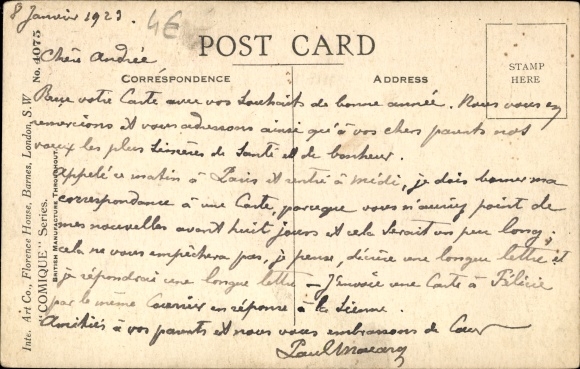 8 Janvier 1923.
4E
Chère Andrée,
POST CARD
CORRESPONDENCE
ADDRESS
STAMP
HERE
Inter. Art Co., Florence House, Barnes, London, S.W
"COMIQUE" Series. No. 4075
BRITISH MANUFACTURE THROUGHOUT.
Reçu votre Carte avec vos Souhaits de bonne année. Nous vous en
remercions et vous adressons ainsi qu'à vos chers parents nos
vœux les plus Sincères de Santé et de bonheur.
Appelé ce matin à Paris et rentré à midi, je dois borner ma
correspondance à une Carte, parceque vous n'auriez point de
mes nouvelles avant huit jours et cela serait un peu long;
cela ne vous empêchera pas, je pense, d'écrire une longue lettre et
je répondrai une longue lettre — J'envoie une Carte à Félicie
par le même Courrier en réponse à la Sienne.
Amitiés à vos parents et nous vous embrassons de Cœur
Paul